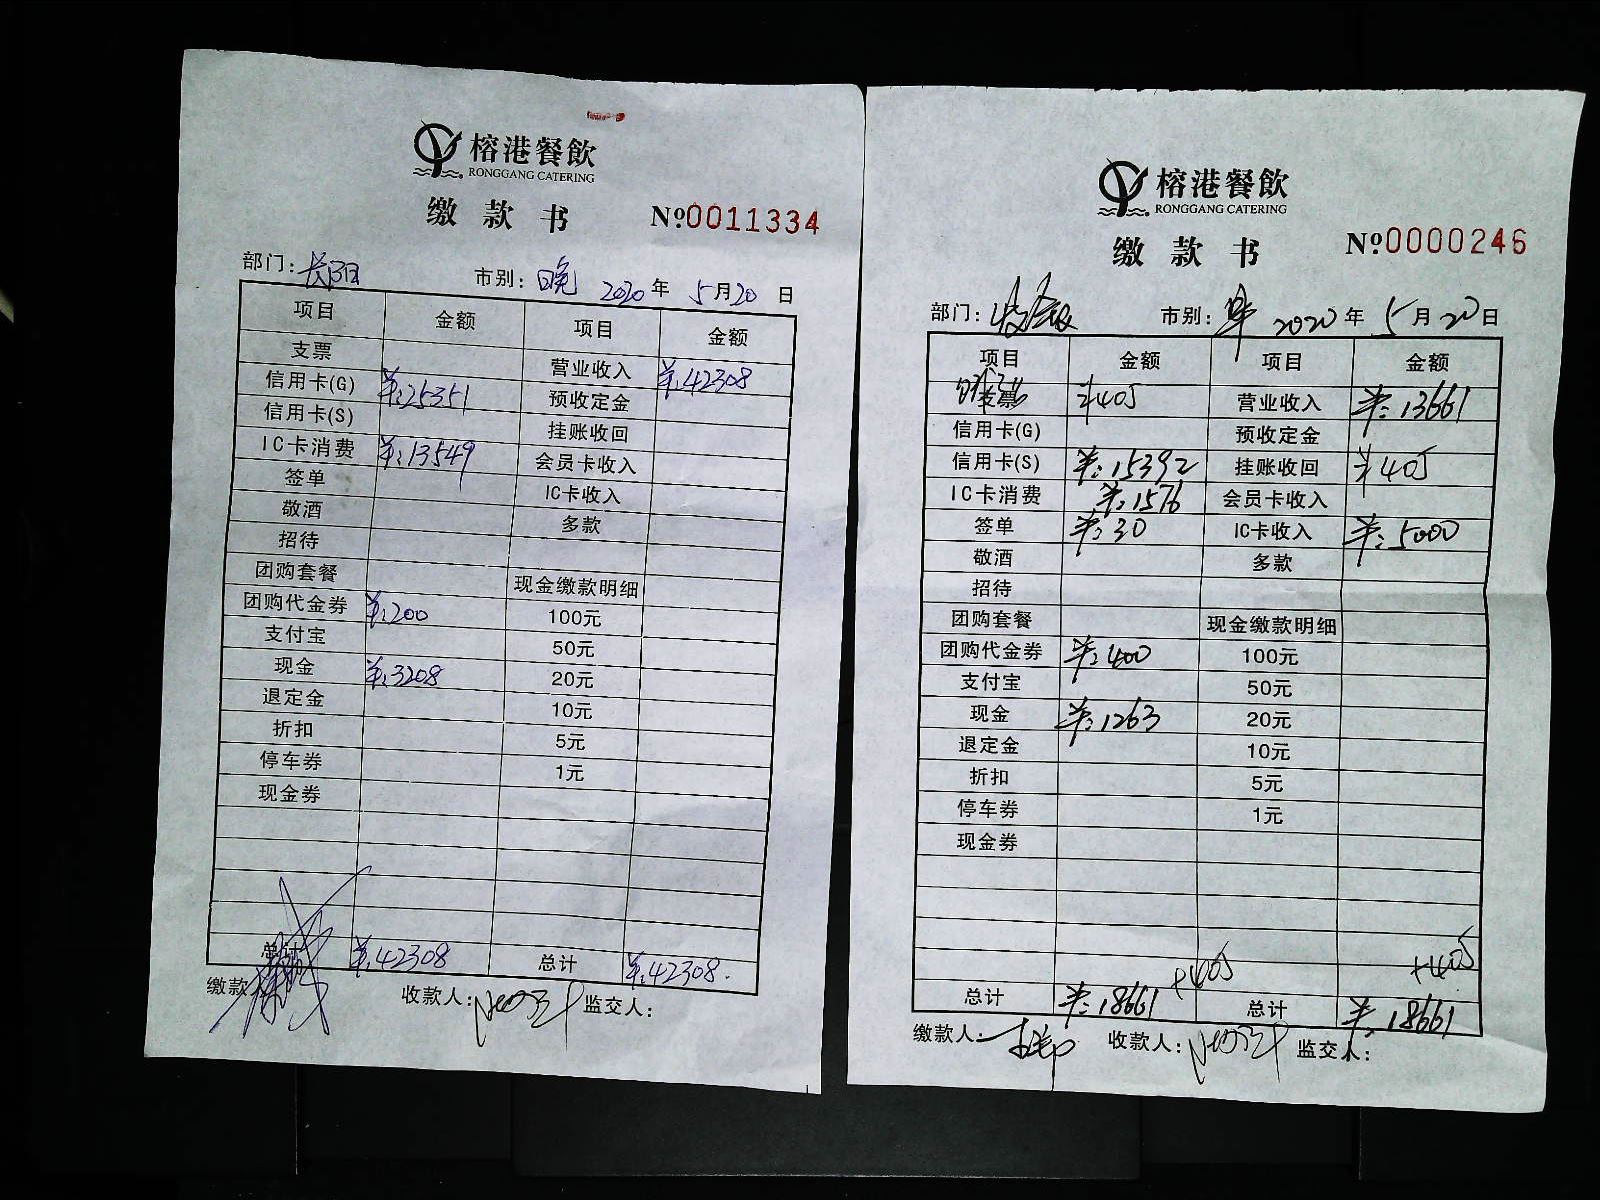 榕港餐飲
RONGGANG CATERING
缴款书 №0011334
部门: 市别:晚 2020年 5月20日
项目 金额 项目 金额
支票 营业收入 ¥:42308
信用卡(G) ¥:25351 预收定金
信用卡(S) 挂账收回
IC卡消费 ¥:13549 会员卡收入
签单 IC卡收入
敬酒 多款
招待
团购套餐 现金缴款明细
团购代金券 ¥:200 100元
支付宝 50元
现金 ¥:3208 20元
退定金 10元
折扣 5元
停车券 1元
现金券
总计 ¥:42308 总计 ¥:42308.
缴款 收款人: 监交人:
榕港餐飲
RONGGANG CATERING
缴款书 №0000246
部门: 市别: 2020年 5月20日
项目 金额 项目 金额
支票 ¥405 营业收入 ¥:13661
信用卡(G) 预收定金
信用卡(S) ¥:15392 挂账收回 ¥405
IC卡消费 ¥:1576 会员卡收入
签单 ¥:30 IC卡收入 ¥:5000
敬酒 多款
招待
团购套餐 现金缴款明细
团购代金券 ¥:400 100元
支付宝 50元
现金 ¥:1263 20元
退定金 10元
折扣 5元
停车券 1元
现金券
+405 +405
总计 ¥:18661 总计 ¥:18661
缴款人: 收款人: 监交人: